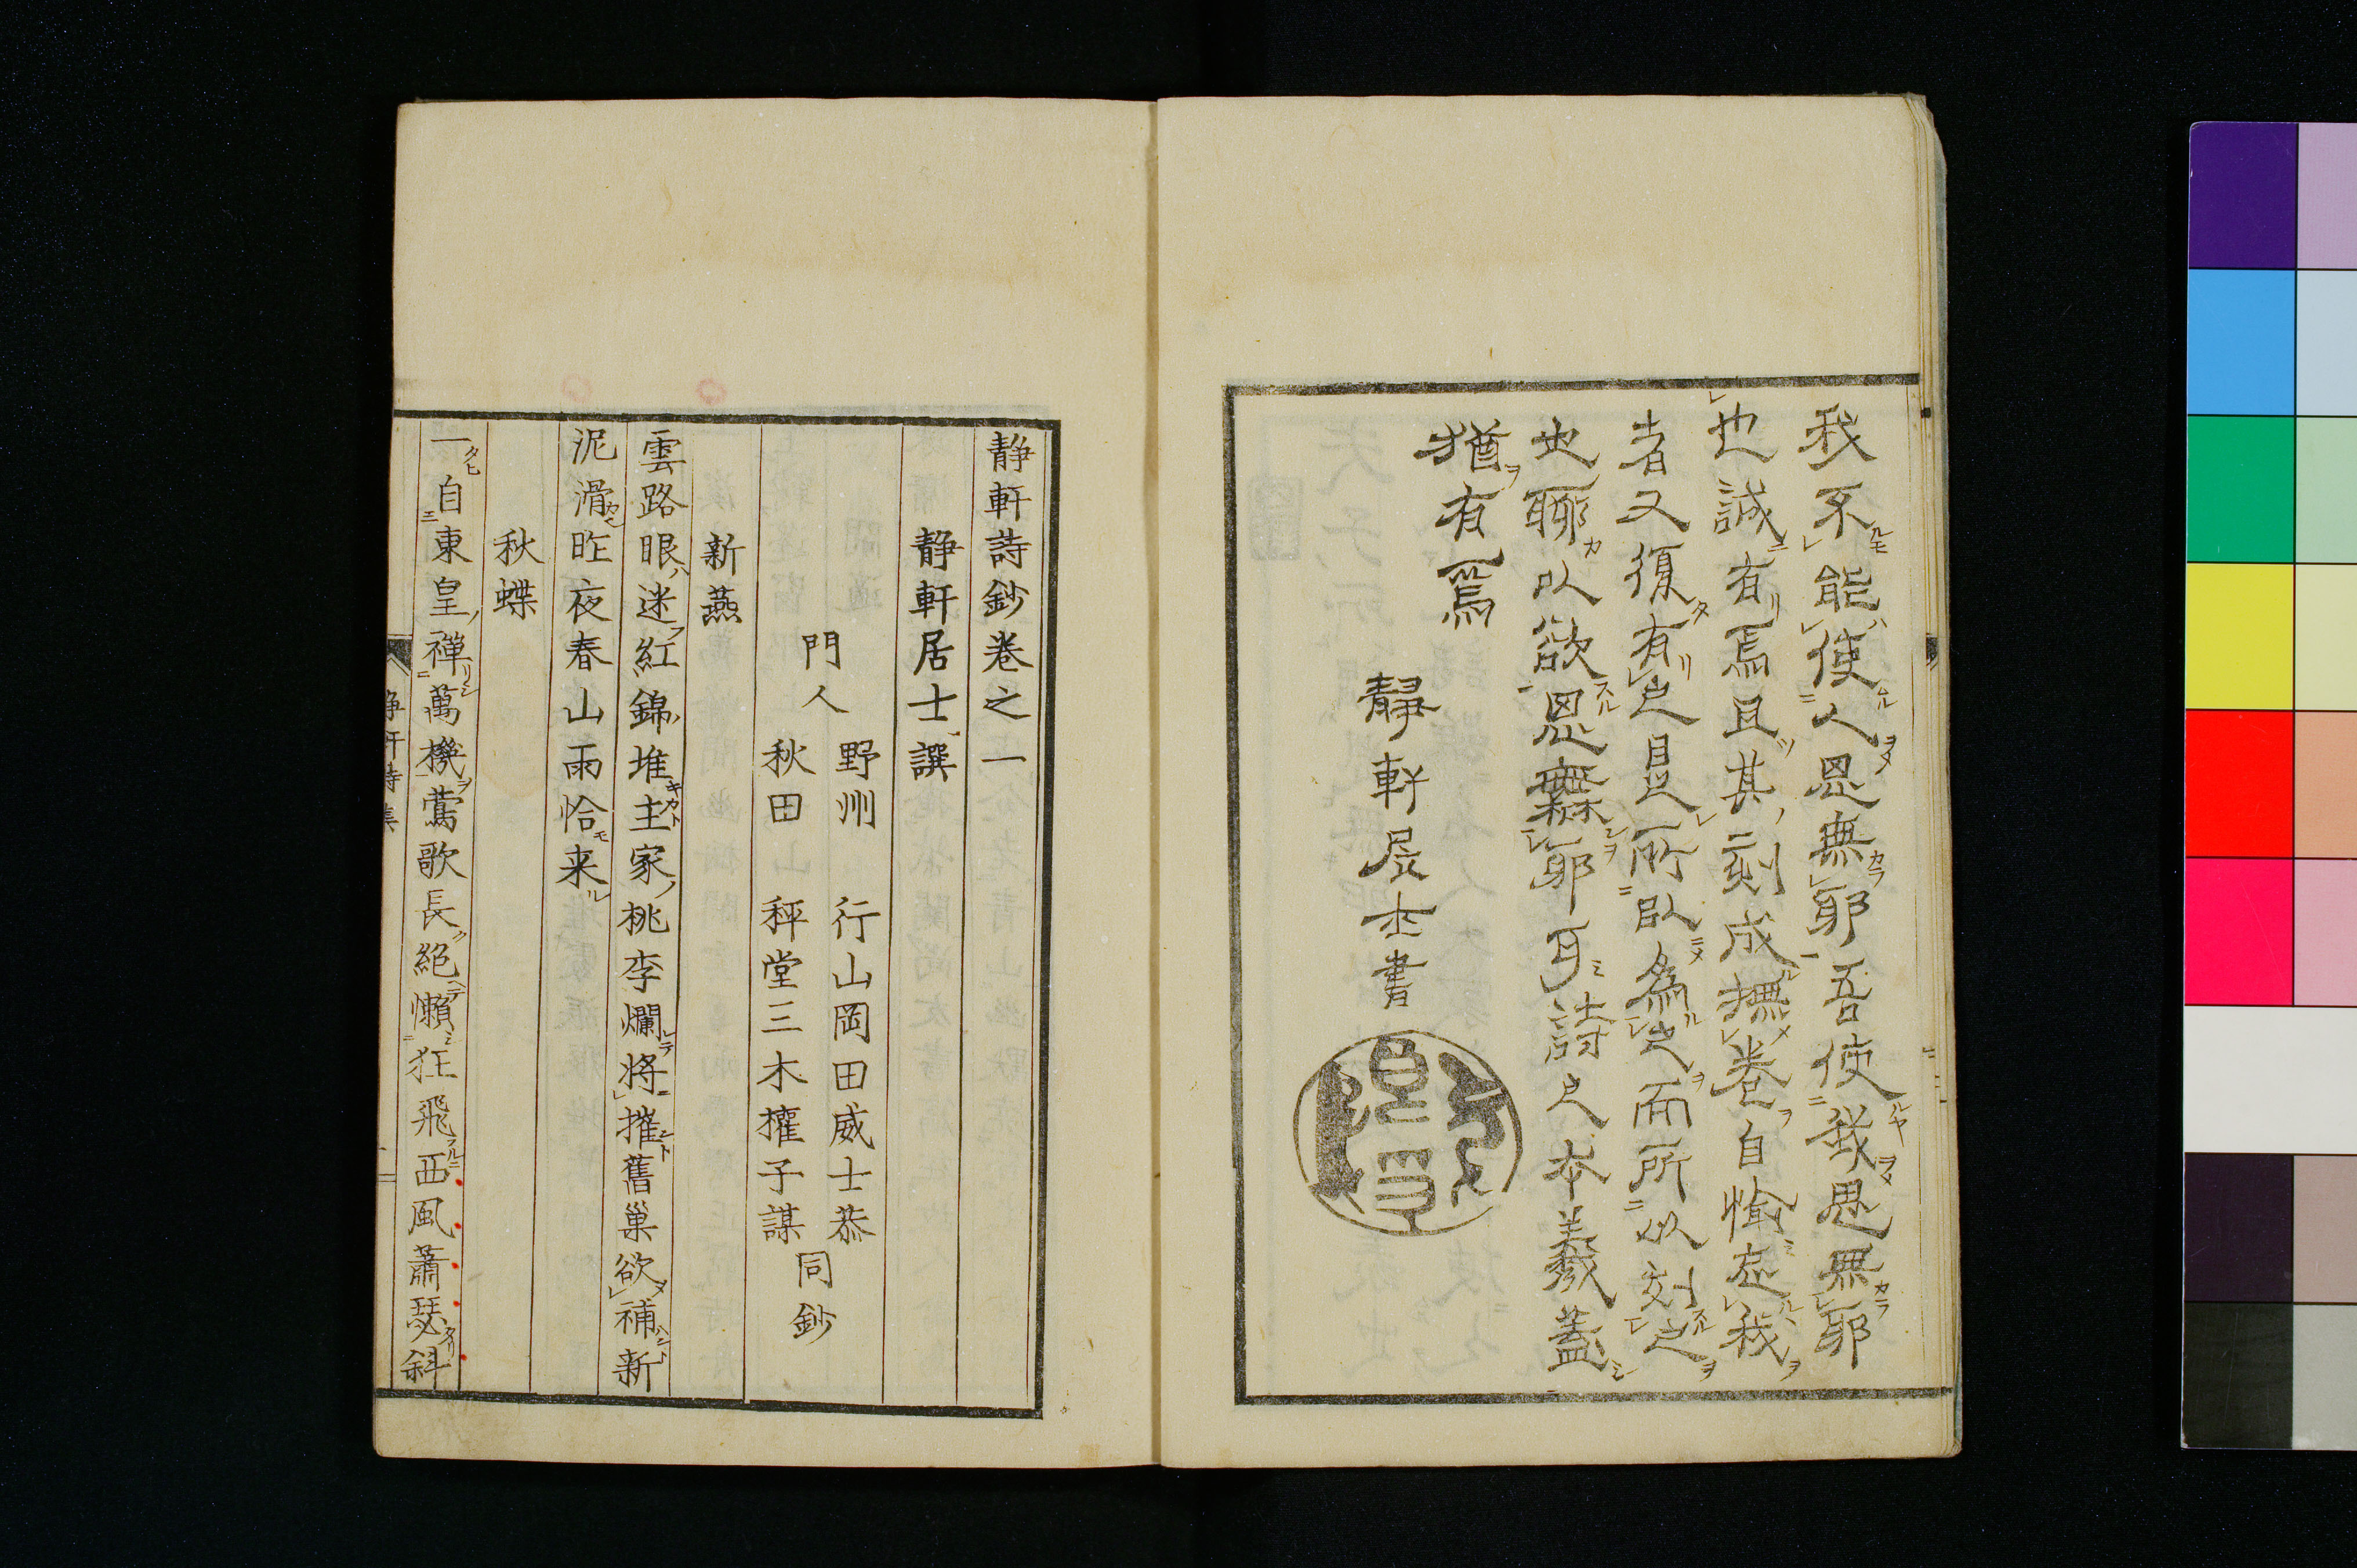 我不能使人思無邪吾使我思無邪
也誠有焉且其刻成撫巻自愉忘我
者又復有之是所以為之而所以刻之
也聊以欲思無邪耳詩之本義蓋
猶有焉
靜軒居士書
静軒詩鈔巻之一
静軒居士譔
門人
野州 行山岡田威士恭
秋田 秤堂三木權子謀
同鈔
新燕
雲路眼迷紅錦堆主家桃李爛將摧舊巢欲補新
泥滑昨夜春山雨恰来
秋蝶
一自東皇禪萬機鶯歌長絕懶狂飛西風蕭瑟斜